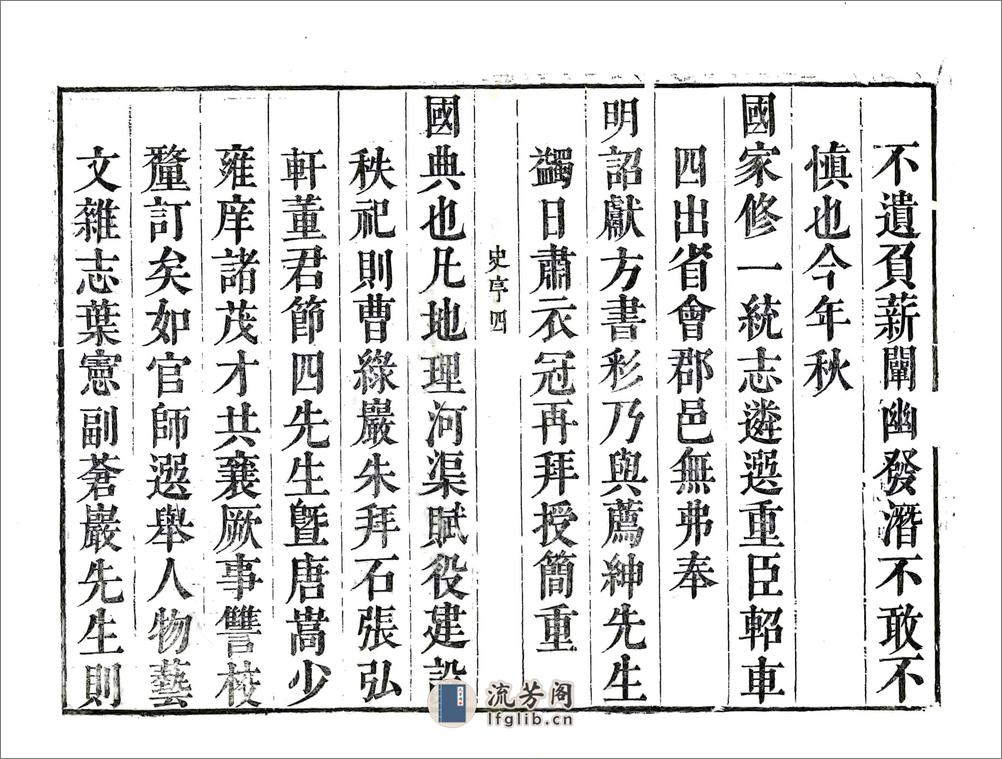 不遺負薪闡幽發潛不敢不
慎也今年秋
國家修一統志遴選重臣軺車
四出省會郡邑無弗奉
明詔獻方書彩乃與薦紳先生
蠲日肅衣冠再拜授簡重
史序四
國典也凡地理河渠賦役建設
秩祀則曹綠巖朱拜石張弘
軒董君節四先生曁唐嵩少
雍庠諸茂才共襄厥事讐校
釐訂矣如官師選舉人物藝
文雜志葉憲副蒼巖先生則
流芳阁
lfglib.cn